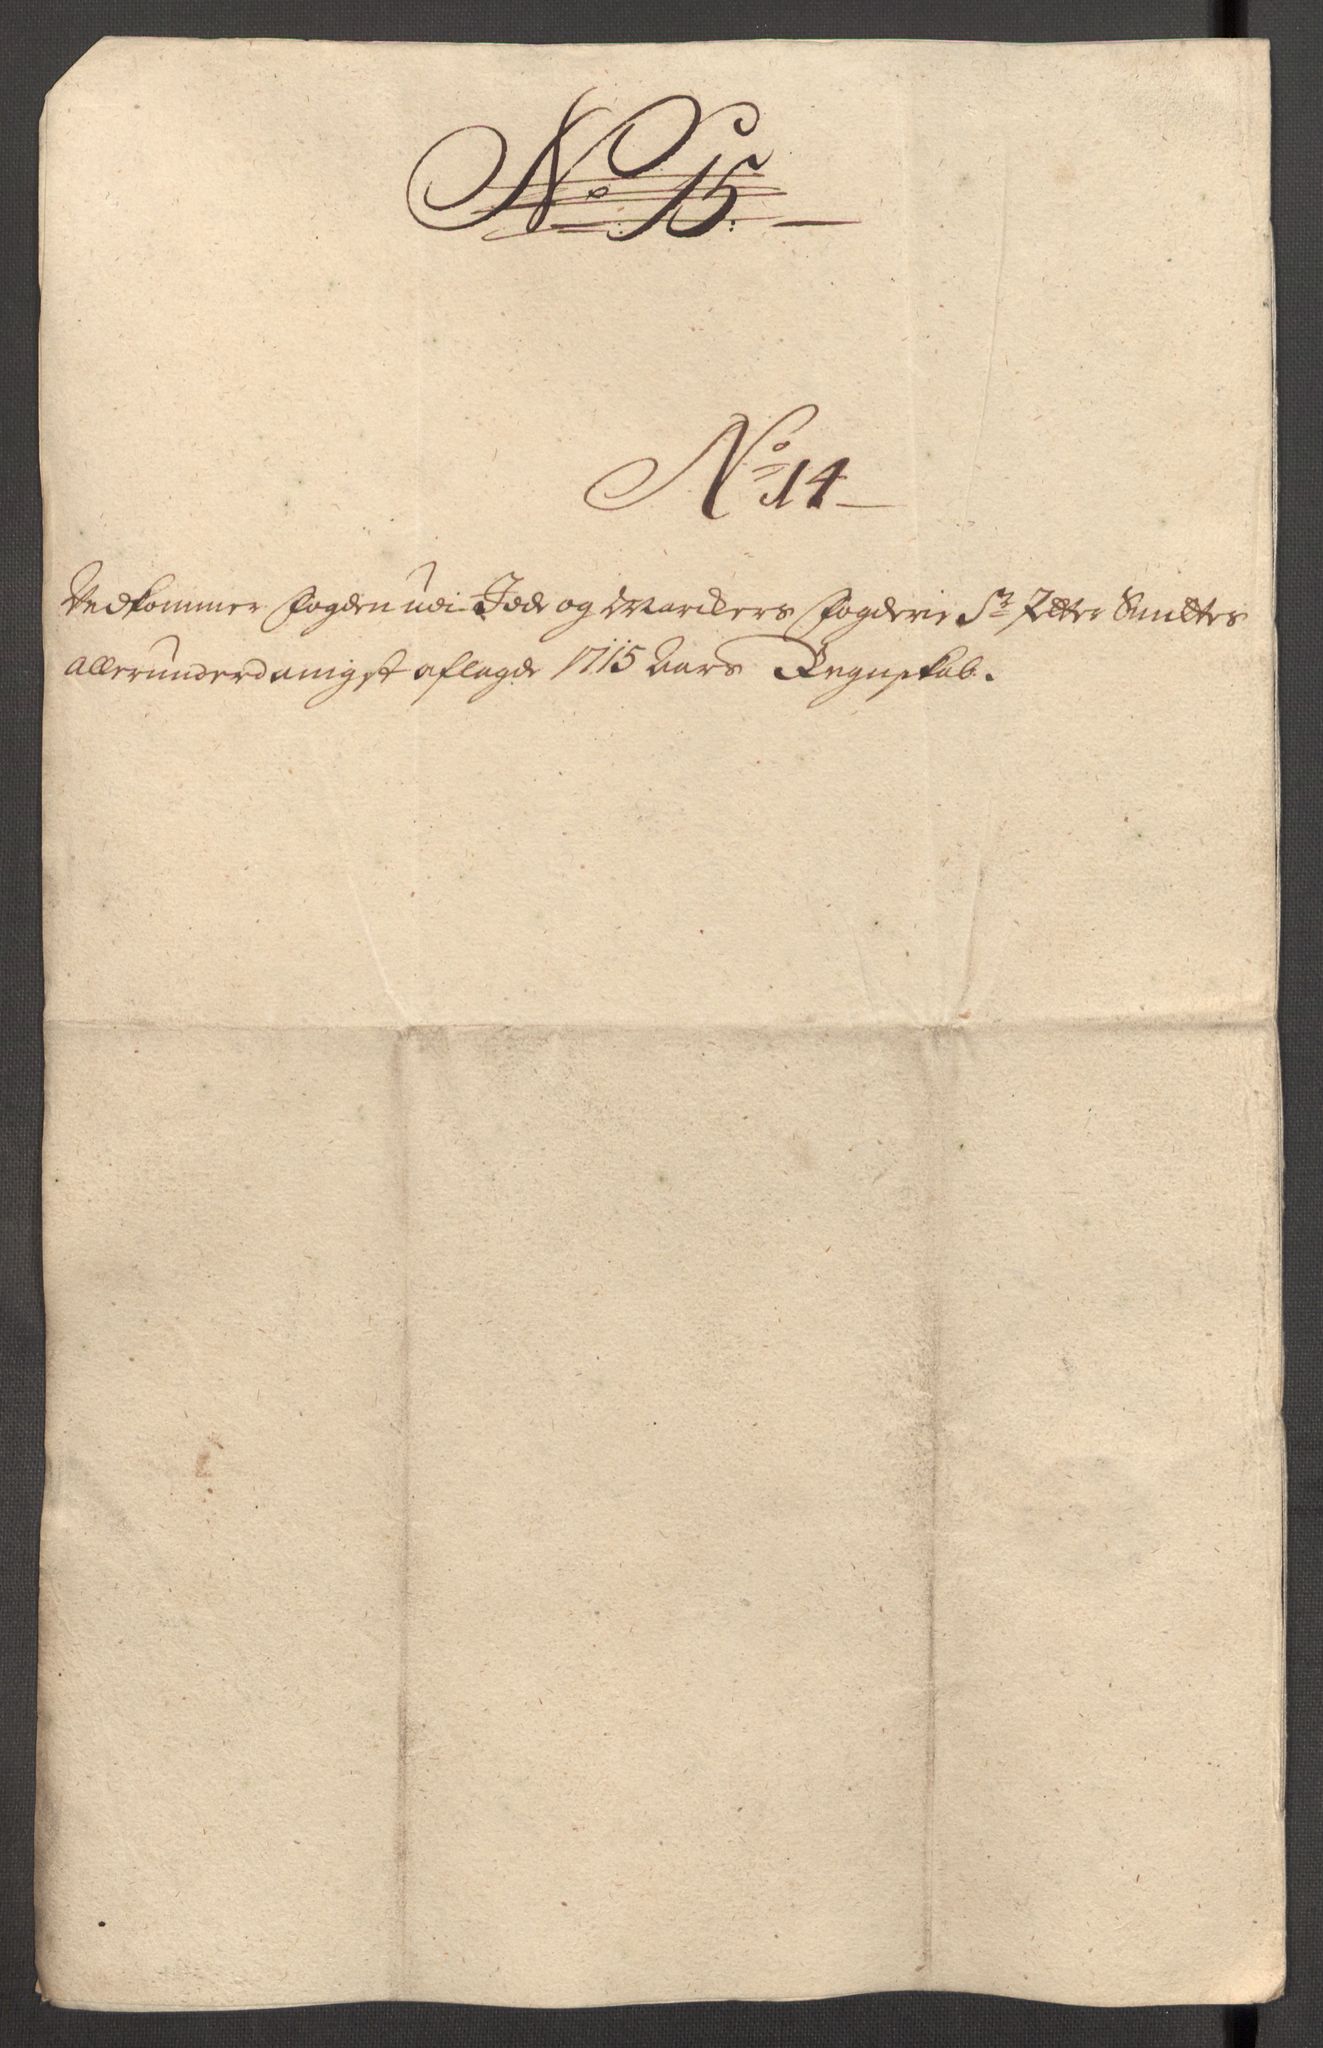 No 15.
No 14
Vedkommer Fogden udi Idde og Markers Fogderie Sr Petter Smiths
allerunderdanigst aflagde 1715 Aars Regnskab.